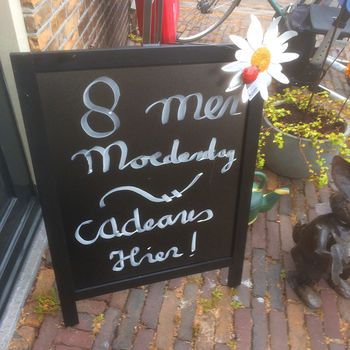 8 mei
Moederdag
cadeaus
Hier!